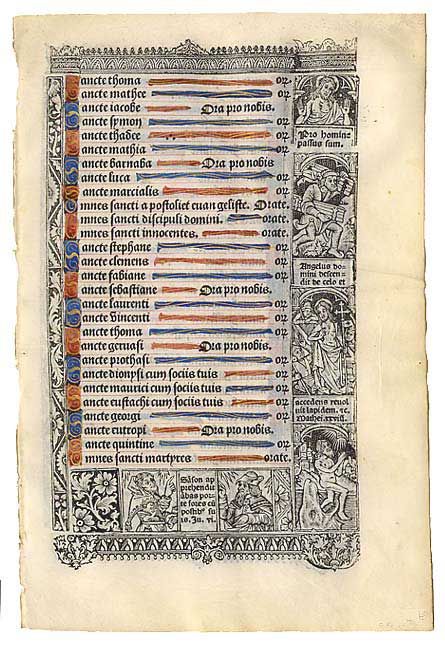 ancte thoma or̄.
ancte mathee or̄
ancte iacobe Ora pro nobis.
ancte symon or̄
ancte thadee or̄
ancte mathia or̄
ancte barnaba Ora pro nobis
ancte luca or̄
ancte marcialis or̄
mnes sancti apostoli et euangeliste. Orate.
mnes sancti discipuli domini. orate.
mnes sancti innocentes. orate.
ancte stephane or̄
ancte clemens or̄
ancte fabiane or̄
ancte sebastiane Ora pro nobis.
ancte laurenti or̄
ancte Vincenti or̄
ancte thoma or̄
ancte geruasi Ora pro nobis.
ancte prothasi or̄
ancte dionysi cum sociis tuis or̄
ancte maurici cum sociis tuis or̄
ancte eustachi cum sociis tuis or̄
ancte georgi or̄
ancte eutropi Ora pro nobis.
ancte quintine or̄
mnes sancti martyres orate.
Pro homine
passus sum.
Angelus do-
mini descen-
dit de celo et
accedens reuol
uit lapidem. ⁊c.
Mathei.xxviii.
Sāson ap
prehendit
ābas por-
te fores cū
postibꝰ su
is. Ju. vi.